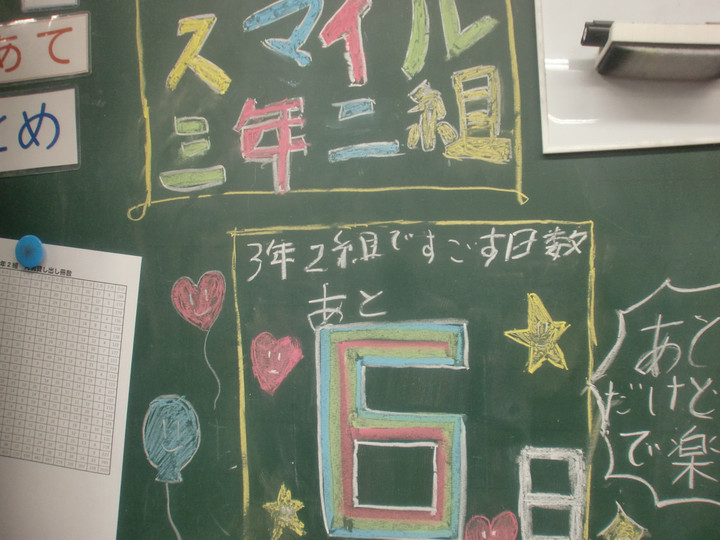 スマイル
三年二組
あて
とめ
3年2組ですごす日数
あと
6日
あと
だけど
で楽